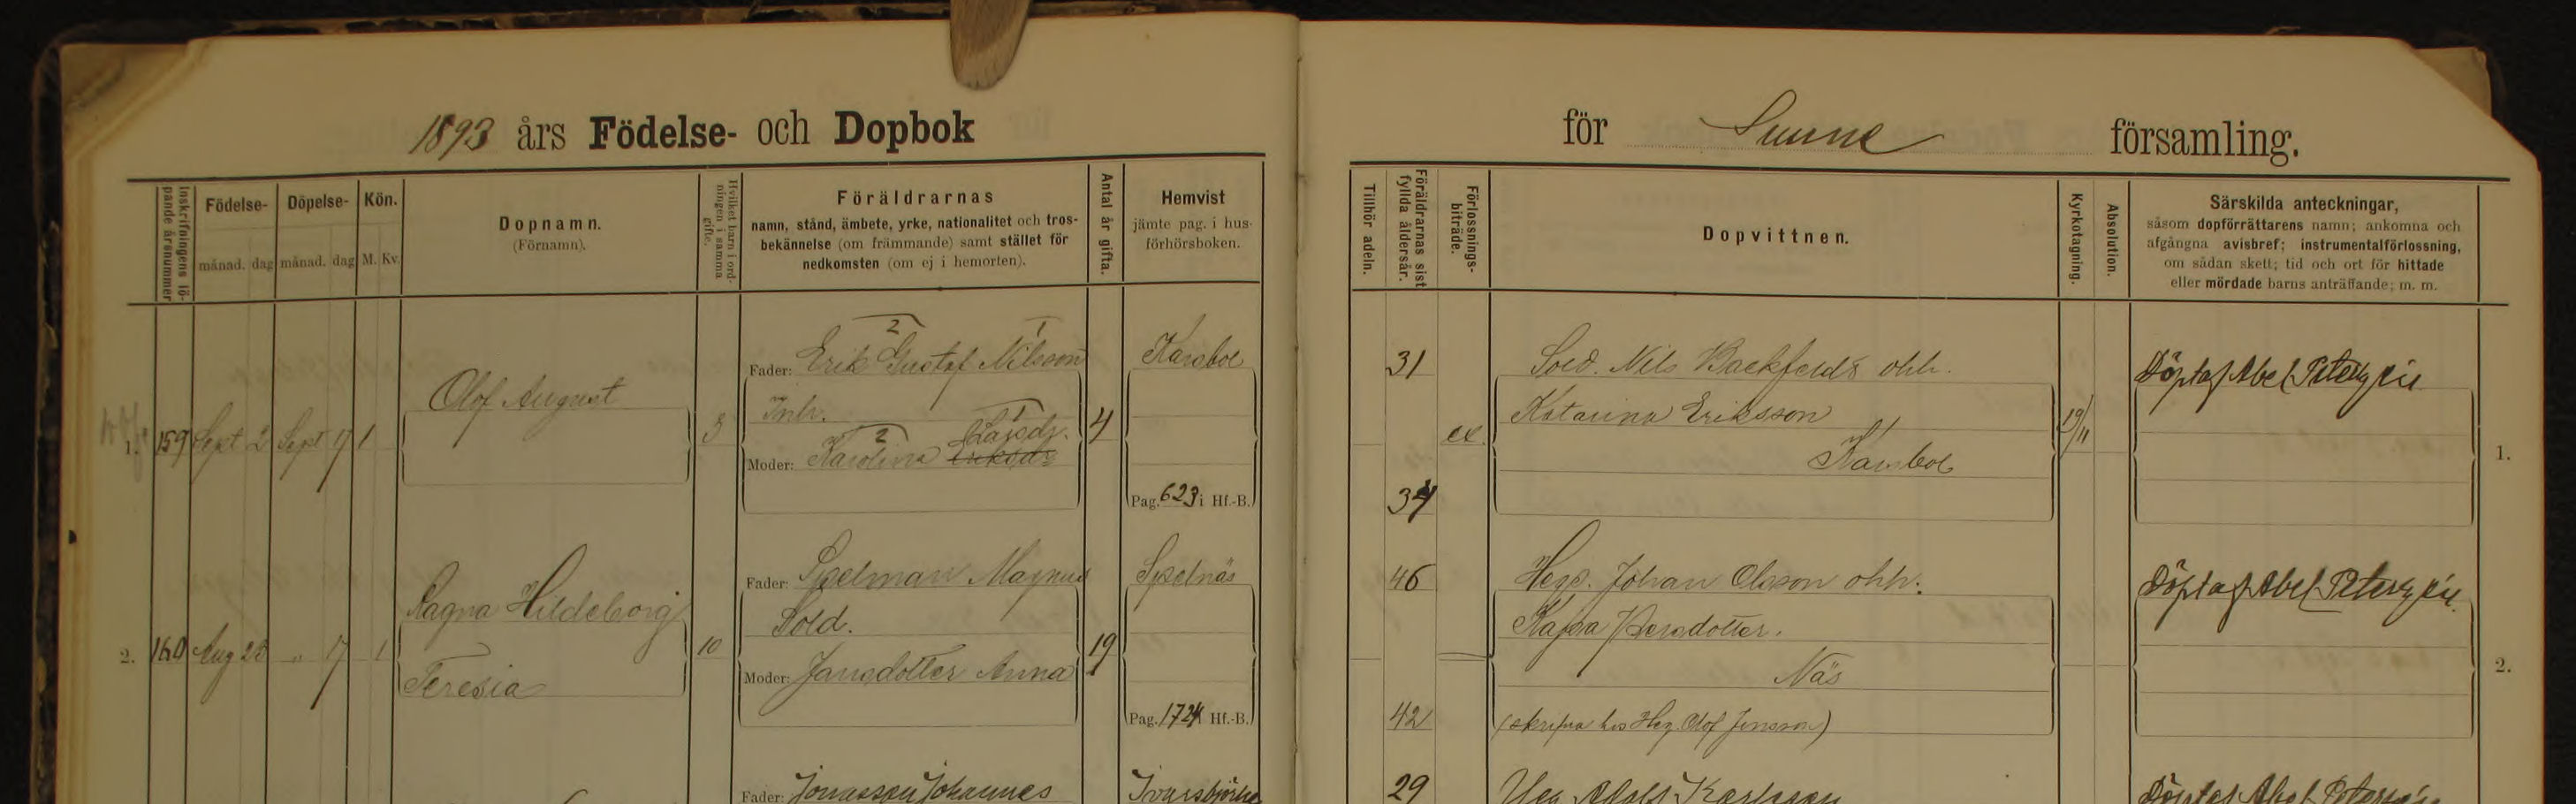 1893 års Födelse- och Dopbok
för Sunne församling.
Inskrifningens lö-
pande årsnummer
Födelse-
månad. dag
Döpelse-
månad. dag
Kön.
M. Kv.
Dopnamn.
(Förnamn).
Hvilket barn i ord-
ningen i samma
gifte.
Föräldrarnas
namn, stånd, ämbete, yrke, nationalitet och tros-
bekännelse (om främmande) samt stället för
nedkomsten (om ej i hemorten).
Antal år gifta.
Hemvist
jämte pag. i hus-
förhörsboken.
Tillhör adeln.
Föräldrarnas sist
fyllda åldersår.
Förlossnings-
biträde.
Dopvittnen.
Kyrkotagning.
Absolution.
Särskilda anteckningar,
såsom dopförrättarens namn; ankomna och
afgångna avisbref; instrumentalförlossning,
om sådan skett; tid och ort för hittade
eller mördade barns anträffande; m. m.
1. 159 Sept 2 Sept 17 1
Olof August
3
2 1
Fader: Erik Gustaf Nilsson
Inh.
2 1
Larsdr.
Moder: Karolina Eriksdr
4
Karsbol
Pag. 623 i Hf.-B.
31
34
ex.
Sold. Nils Backfeldt ohh.
Katarina Eriksson
Karsbol
19/11
Döpt af Abel Petersén
1.
2. 160 Aug 23 " 17 1
Ragna Hildeborg
Teresia
10
Fader: Spelman Magnus
Sold.
Moder: Jansdotter Anna
19
Spelnäs
Pag. 1724 Hf.-B.
46
42
Heg. Johan Olsson ohh.
Kajsa Persdotter.
Näs
Döpt af Abel Petersén
2.
Fader: Jonasson Johannes
29